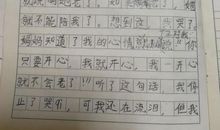 就不能陪我了。想到这，我哭了
妈妈知道了我的心情就对我
只要开心，我就开心，我一开心
就不会老了！”听了这句话，我停
止了哭泣，可我还在流泪，但我